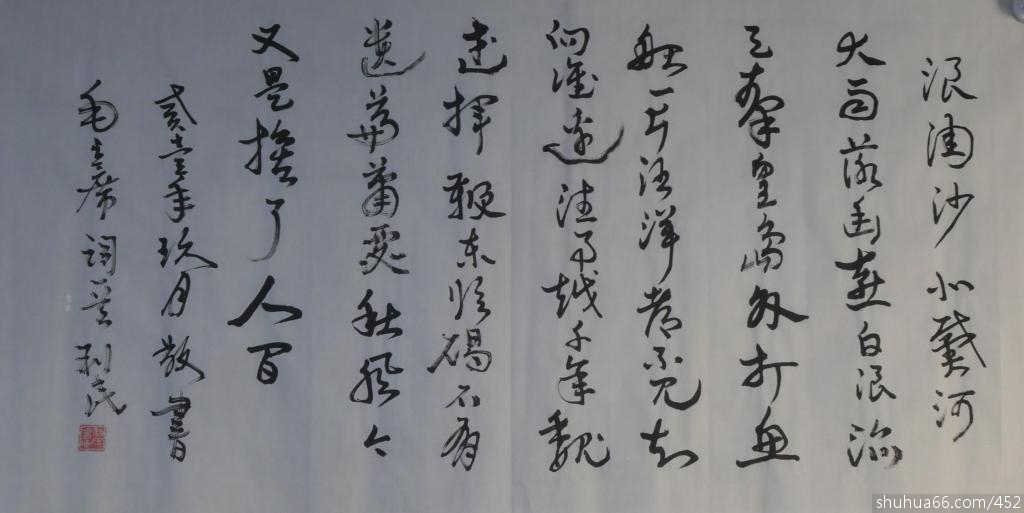 浪淘沙 北戴河
大雨落幽燕白浪滔
天秦皇岛外打鱼
船一片汪洋都不见知
向谁边往事越千年魏
武挥鞭东临碣石有
遗篇萧瑟秋风今
又是换了人间
贰壹年玖月敬书
毛主席词 吴利民
shuhua66.com/452